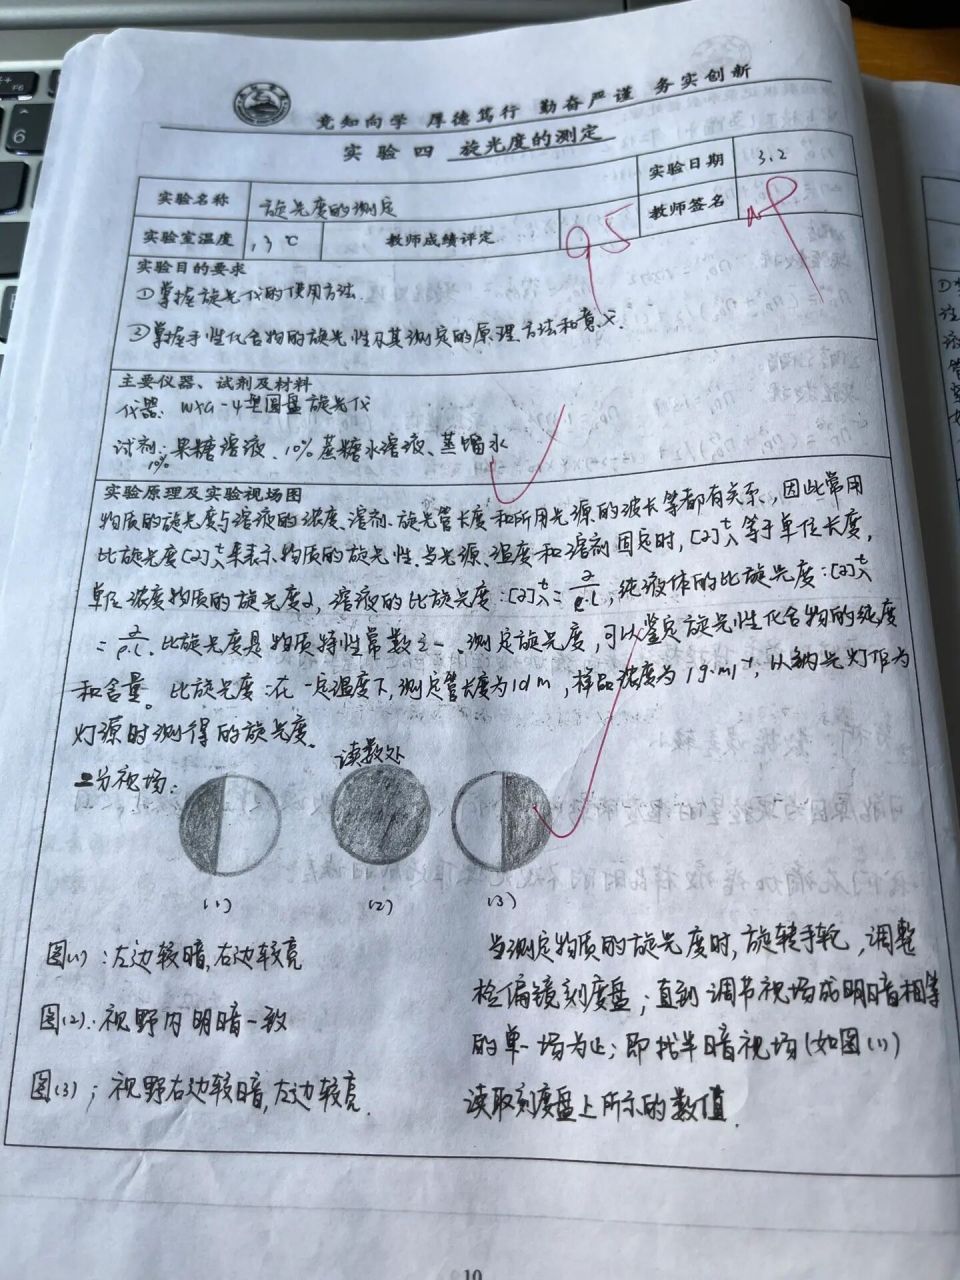 竞知向学 厚德笃行 勤奋严谨 务实创新
实 验 四 旋光度的测定
实验名称 旋光度的测定 实验日期 3.2
实验室温度 13 ℃ 教师成绩评定 95 教师签名
实验目的要求
①掌握旋光仪的使用方法.
②掌握手性化合物的旋光性及其测定的原理.方法和意义.
主要仪器、试剂及材料
仪器: WXG-4型圆盘旋光仪
试剂:10%果糖溶液、10%蔗糖水溶液、蒸馏水
实验原理及实验视场图
物质的旋光度与溶液的浓度、溶剂、旋光管长度和所用光源的波长等都有关系,因此常用
比旋光度[α]tλ来表示物质的旋光性.当光源、温度和溶剂固定时,[α]tλ等于单位长度,
单位浓度物质的旋光度α,溶液的比旋光度:[α]tλ=α/ρ·l,纯液体的比旋光度:[α]tλ
=α/ρ·l.比旋光度是物质特性常数之一、测定旋光度,可以鉴定旋光性化合物的纯度
和含量。比旋光度:在一定温度下,测定管长度为1dm,样品浓度为1g·ml-1,以钠光灯作为
灯源时测得的旋光度。
二分视场:
读数处
(1) (2) (3)
图(1):左边较暗,右边较亮
图(2):视野内明暗一致
图(3);视野右边较暗,左边较亮.
当测定物质的旋光度时,旋转手轮,调整
检偏镜刻度盘;直到调节视场成明暗相等
的单一场为止;即找半暗视场(如图(1))
读取刻度盘上所示的数值.
10